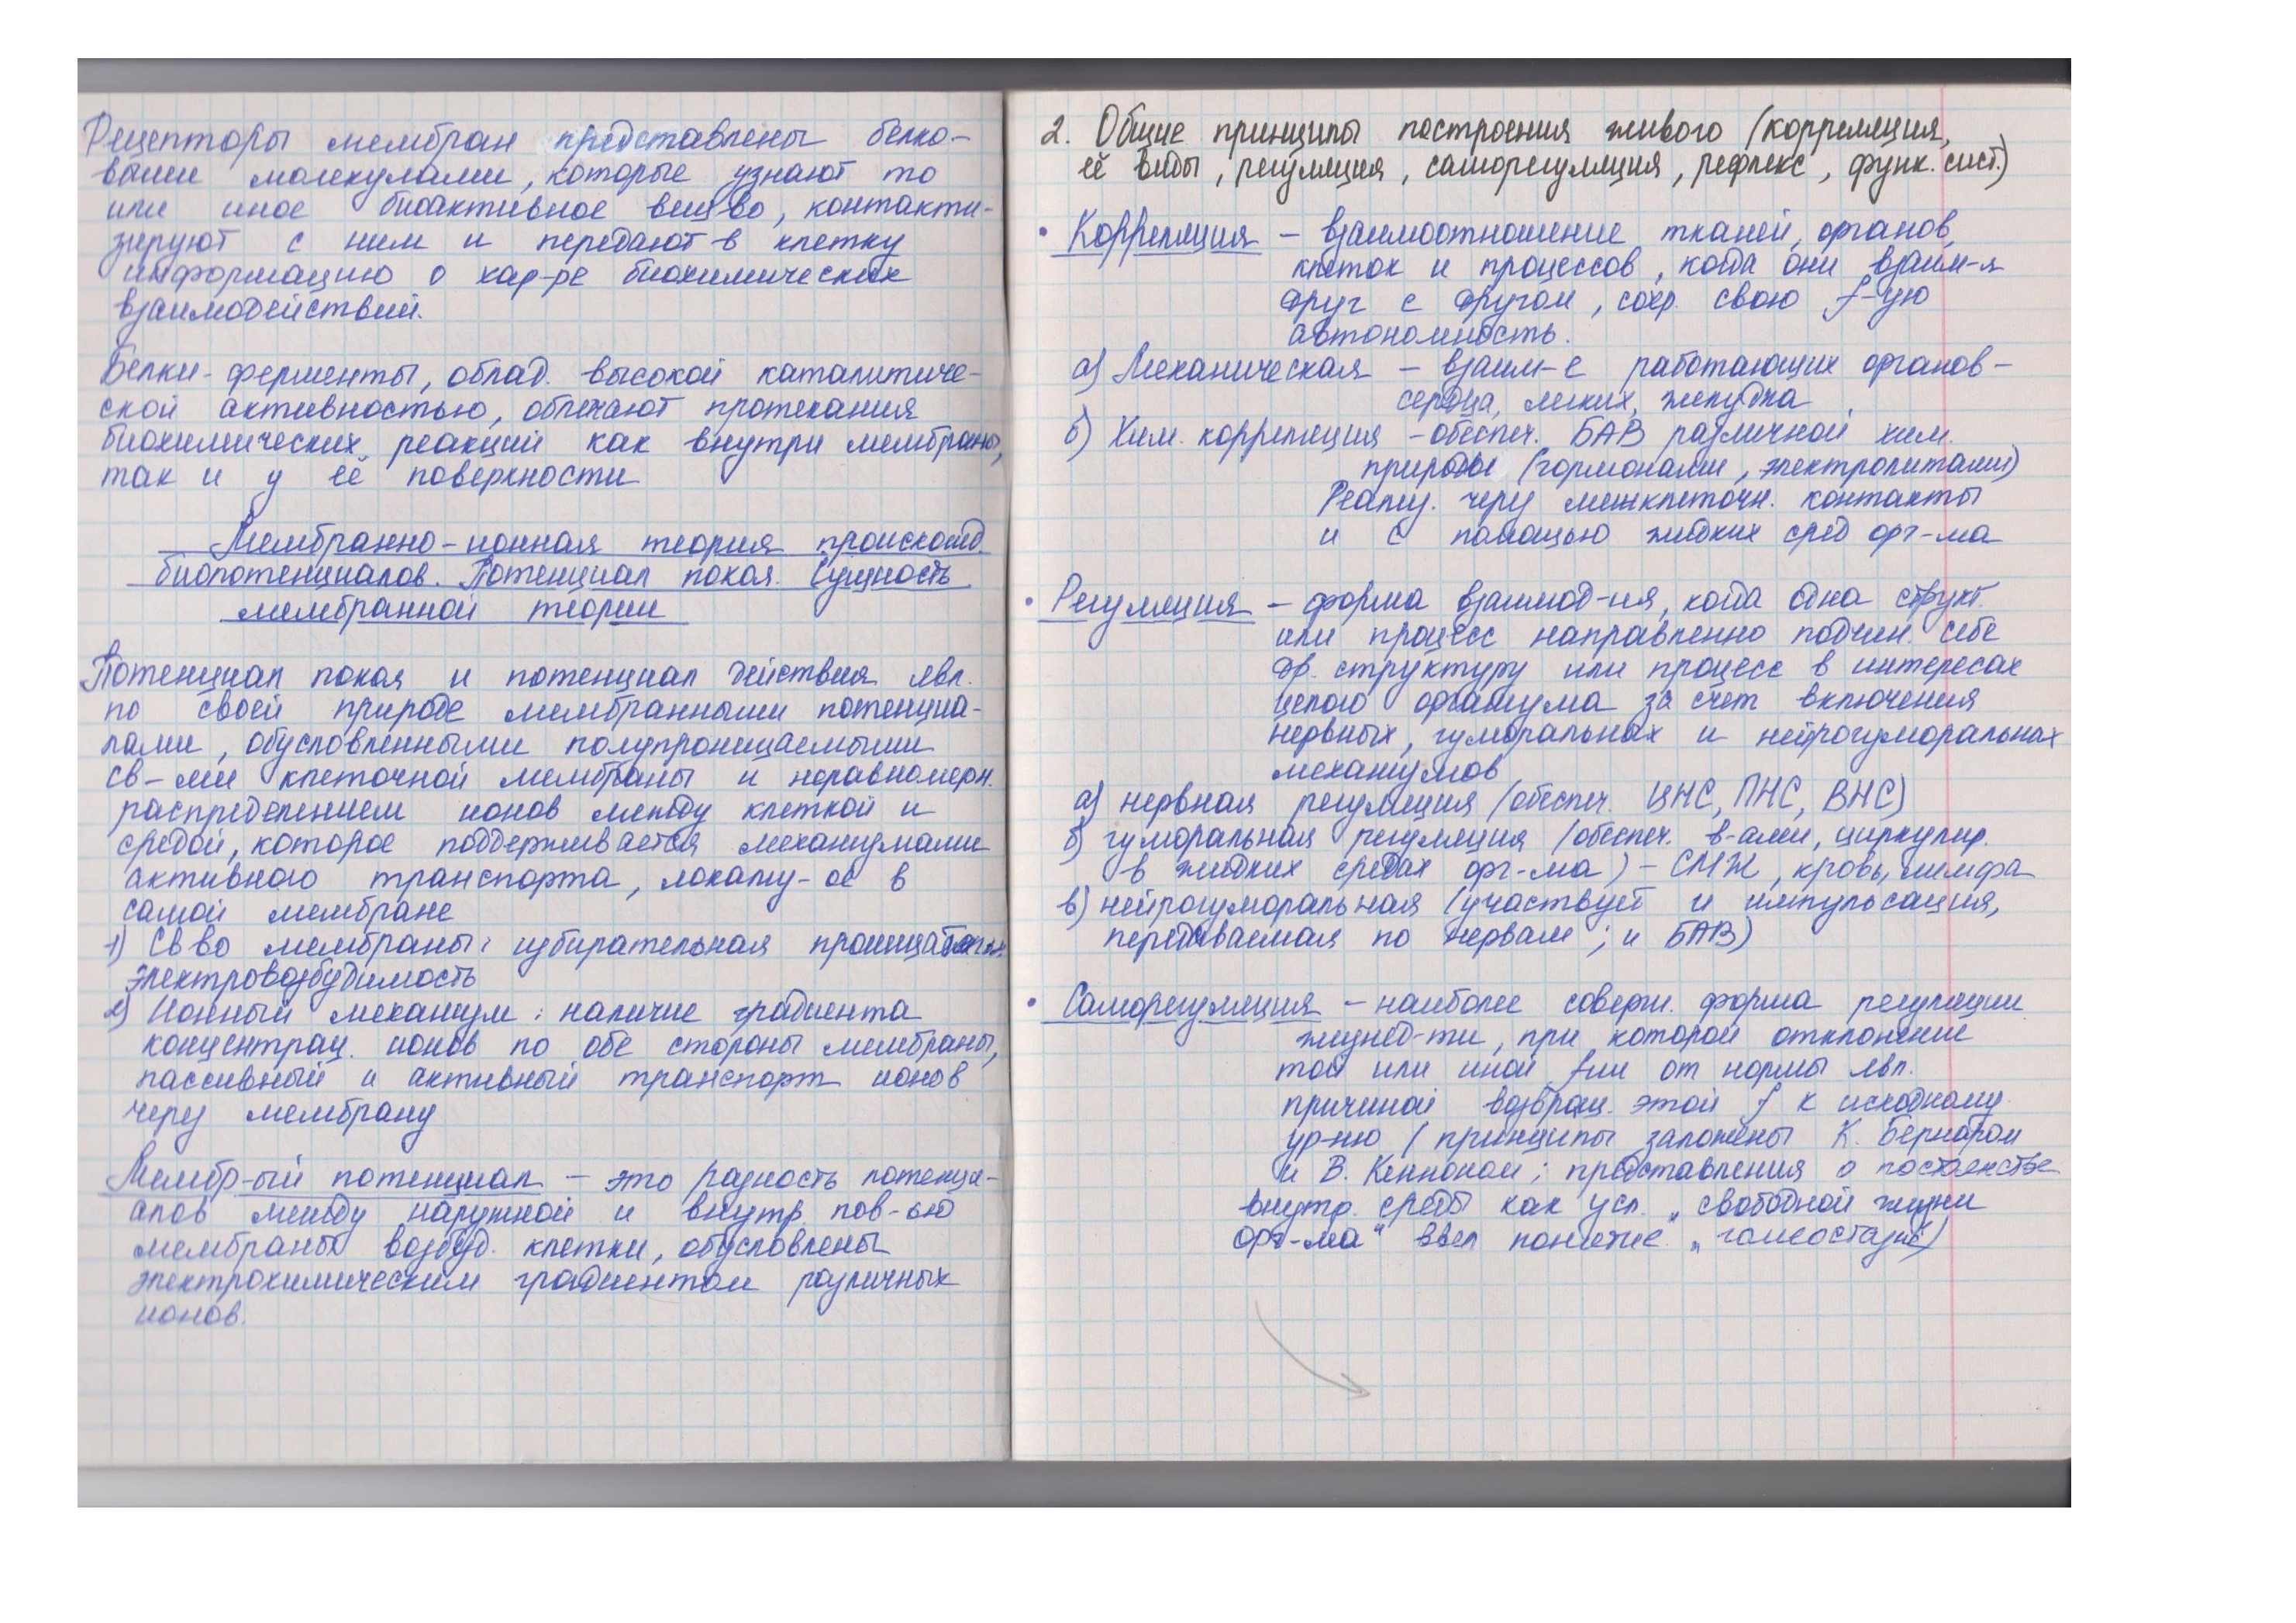 Рецепторы мембран представлены белко-
выми молекулами, которые узнают то
или иное биоактивное вещ-во, контакти-
зируют с ним и передают в клетку
информацию о хар-ре биохимических
взаимодействий.
Белки-ферменты, облад. высокой каталитиче-
ской активностью, облегчают протекания
биохимических реакций как внутри мембраны,
так и у её поверхности
Мембранно-ионная теория происхожд.
биопотенциалов. Потенциал покоя. Сущность
мембранной теории
Потенциал покоя и потенциал действия явл.
по своей природе мембранными потенциа-
лами, обусловленными полупроницаемыми
св-ми клеточной мембраны и неравномерн.
распределением ионов между клеткой и
средой, которое поддерживается механизмами
активного транспорта, локализ-ое в
самой мембране
1) Св-во мембраны: избирательная проницательн.
электровозбудимость
2) Ионный механизм: наличие градиента
концентрац. ионов по обе стороны мембраны,
пассивный и активный транспорт ионов
через мембрану
Мембр-ый потенциал – это разность потенци-
алов между наружной и внутр. пов-ью
мембраны возбуд. клетки, обусловлены
электрохимическим градиентом различных
ионов.
2. Общие принципы построения живого (корреляция,
её виды, регуляция, саморегуляция, рефлекс, функ. сист.)
• Корреляция – взаимоотношение тканей, органов,
клеток и процессов, когда они взаим-я
друг с другом, сохр. свою f-ую
автономность.
а) Механическая – взаим-е работающих органов –
сердца, легких, желудка
б) Хим. корреляция – обеспеч. БАВ различной хим.
природы (гормонами, электролитами)
Реализ. через межклеточн. контакты
и с помощью жидких сред орг-ма
• Регуляция – форма взаимод-ия, когда одна структ.
или процесс направленно подчин. себе
др. структуру или процесс в интересах
целого организма за счет включения
нервных, гуморальных и нейрогуморальных
механизмов
а) нервная регуляция (обеспеч. ЦНС, ПНС, ВНС)
б) гуморальная регуляция (обеспеч. в-ами, циркулир.
в жидких средах орг-ма) – СМЖ, кровь, лимфа
в) нейрогуморальная (участвует и импульсация,
передаваемая по нервам; и БАВ)
• Саморегуляция – наиболее соверш. форма регуляции
жизнед-ти, при которой отклонение
той или иной f-ии от нормы явл.
причиной возвращ. этой f к исходному
ур-ню (принципы заложены К. Бернаром
и В. Кенноном; представления о постоенстве
внутр. среды как усл. „свободной жизни
орг-ма" ввел понятие „гомеостазис)